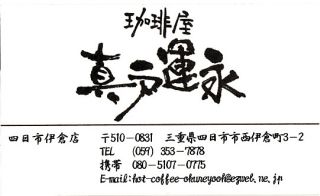 珈琲屋
真 運永
四日市伊倉店 〒510-0831 三重県四日市市西伊倉町3-2
TEL (059) 353-7878
携帯 080-5107-0775
E-mail: